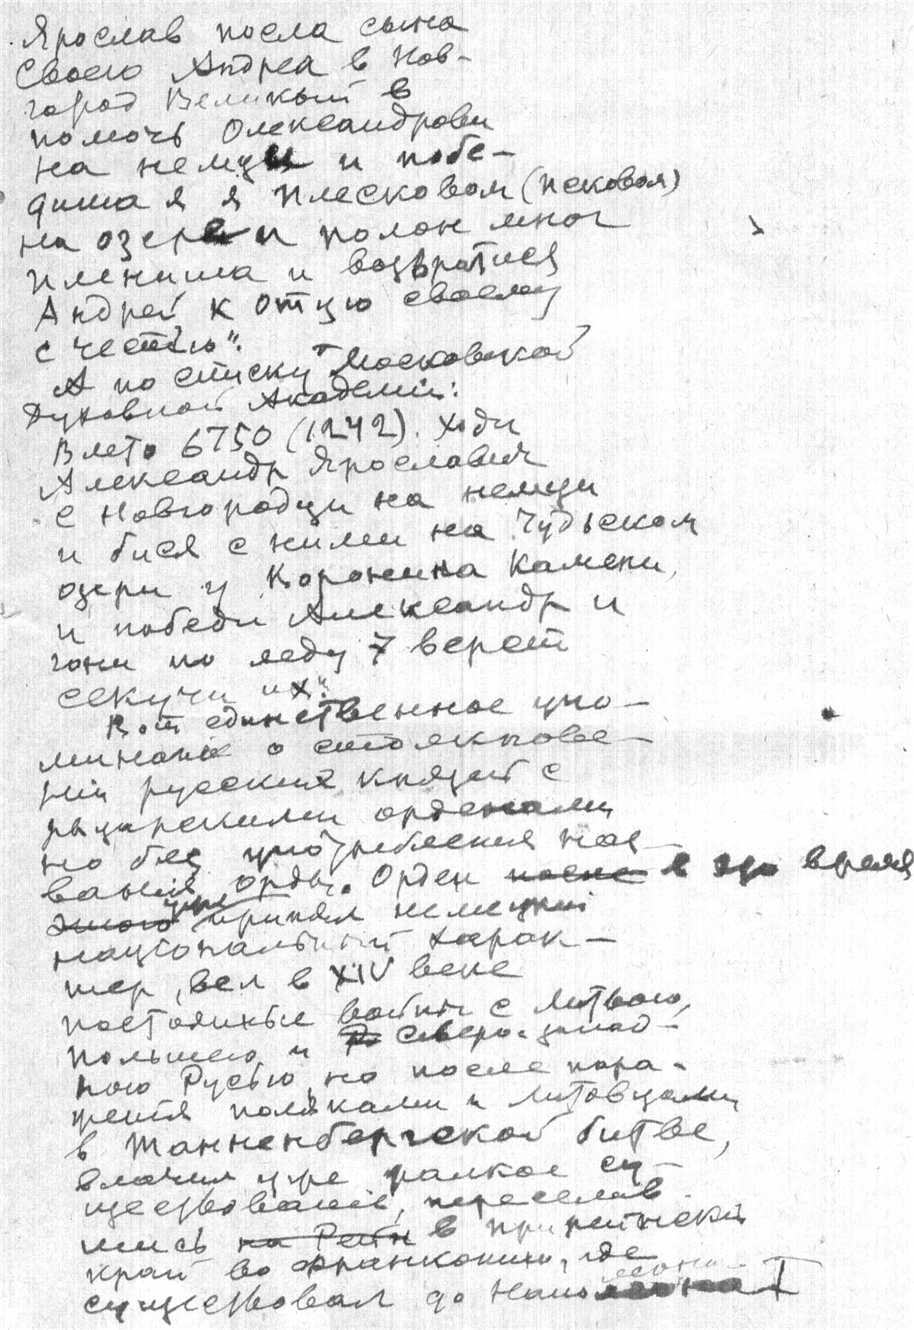 Ярослав посла сына
своего Андреа в Нов-
город Великый в
помочь Олександрови
на немци и побе-
диша я я Плесковом (Псковом)
на озере и полон мног
плениша и возвратися
Андрей к отцю своему
с честью".
А по списку Московской
Духовной Академiи:
В лето 6750 (1242). Ходи
Александр Ярославич
с Новгородци на немци
и бися с ними на Чудьском
озери у Воронина Камени,
и победи Александр и
гони по леду 7 верст
секучи их".
Вот единственное упо-
минанiе о столкнове-
нiи русских князей с
рыцарскими орденами
но без употребления наз-
ванiя орды. Орден после в это время
этого уже принял немецкiй
нацiональный харак-
тер, вел в XIV веке
постоянные войны с Литвою,
Польшею и Северо-запад-
ною Русью, но после пора-
женiя поляками и литовцами
в Танненбергской битве,
влачил уже жалкое су-
ществованiе, переселив
шись на Рейн в прирейнскiй
край во Франконию, где
существовал до Наполеона I